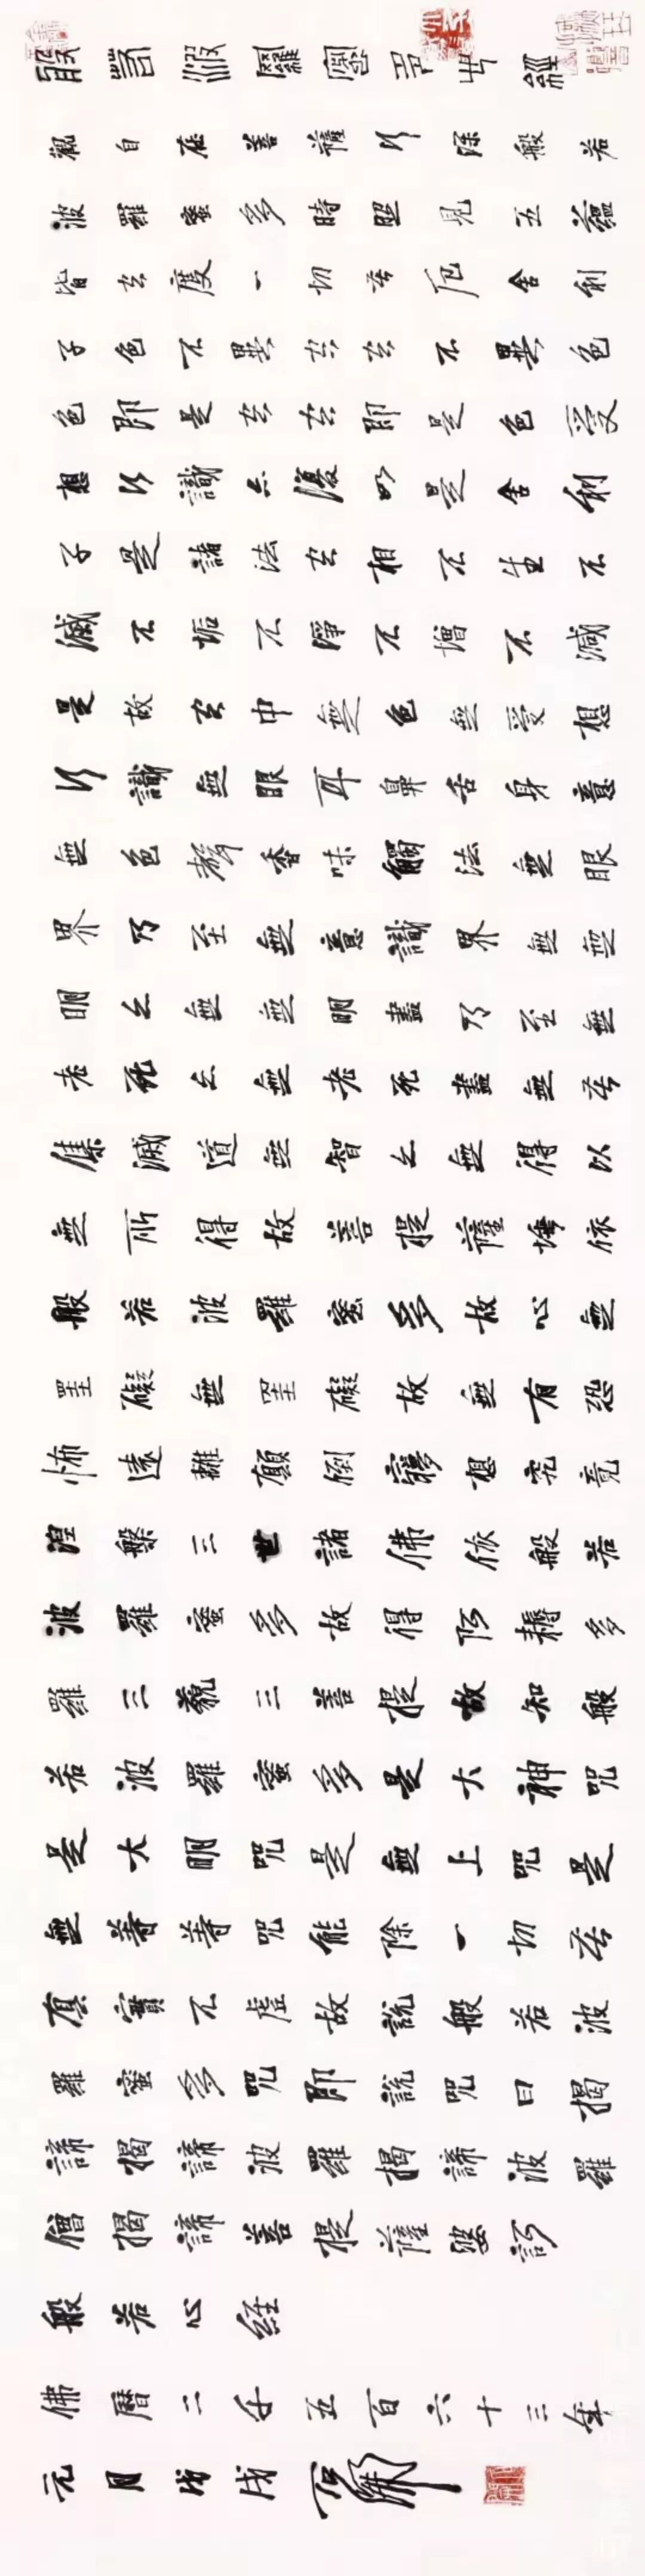 般若波羅蜜多心經
觀自在菩薩行深般若
波羅蜜多時照見五蘊
皆空度一切苦厄舍利
子色不異空空不異色
色即是空空即是色受
想行識亦復如是舍利
子是諸法空相不生不
滅不垢不淨不增不減
是故空中無色無受想
行識無眼耳鼻舌身意
無色聲香味觸法無眼
界乃至無意識界無無
明亦無無明盡乃至無
老死亦無老死盡無苦
集滅道無智亦無得以
無所得故菩提薩埵依
般若波羅蜜多故心無
罣礙無罣礙故無有恐
怖遠離顛倒夢想究竟
涅槃三世諸佛依般若
波羅蜜多故得阿耨多
羅三藐三菩提故知般
若波羅蜜多是大神咒
是大明咒是無上咒是
無等等咒能除一切苦
真實不虛故說般若波
羅蜜多咒即說咒曰揭
諦揭諦波羅揭諦波羅
僧揭諦菩提薩婆訶
般若心經
佛曆二千五百六十三年
元月戊戌